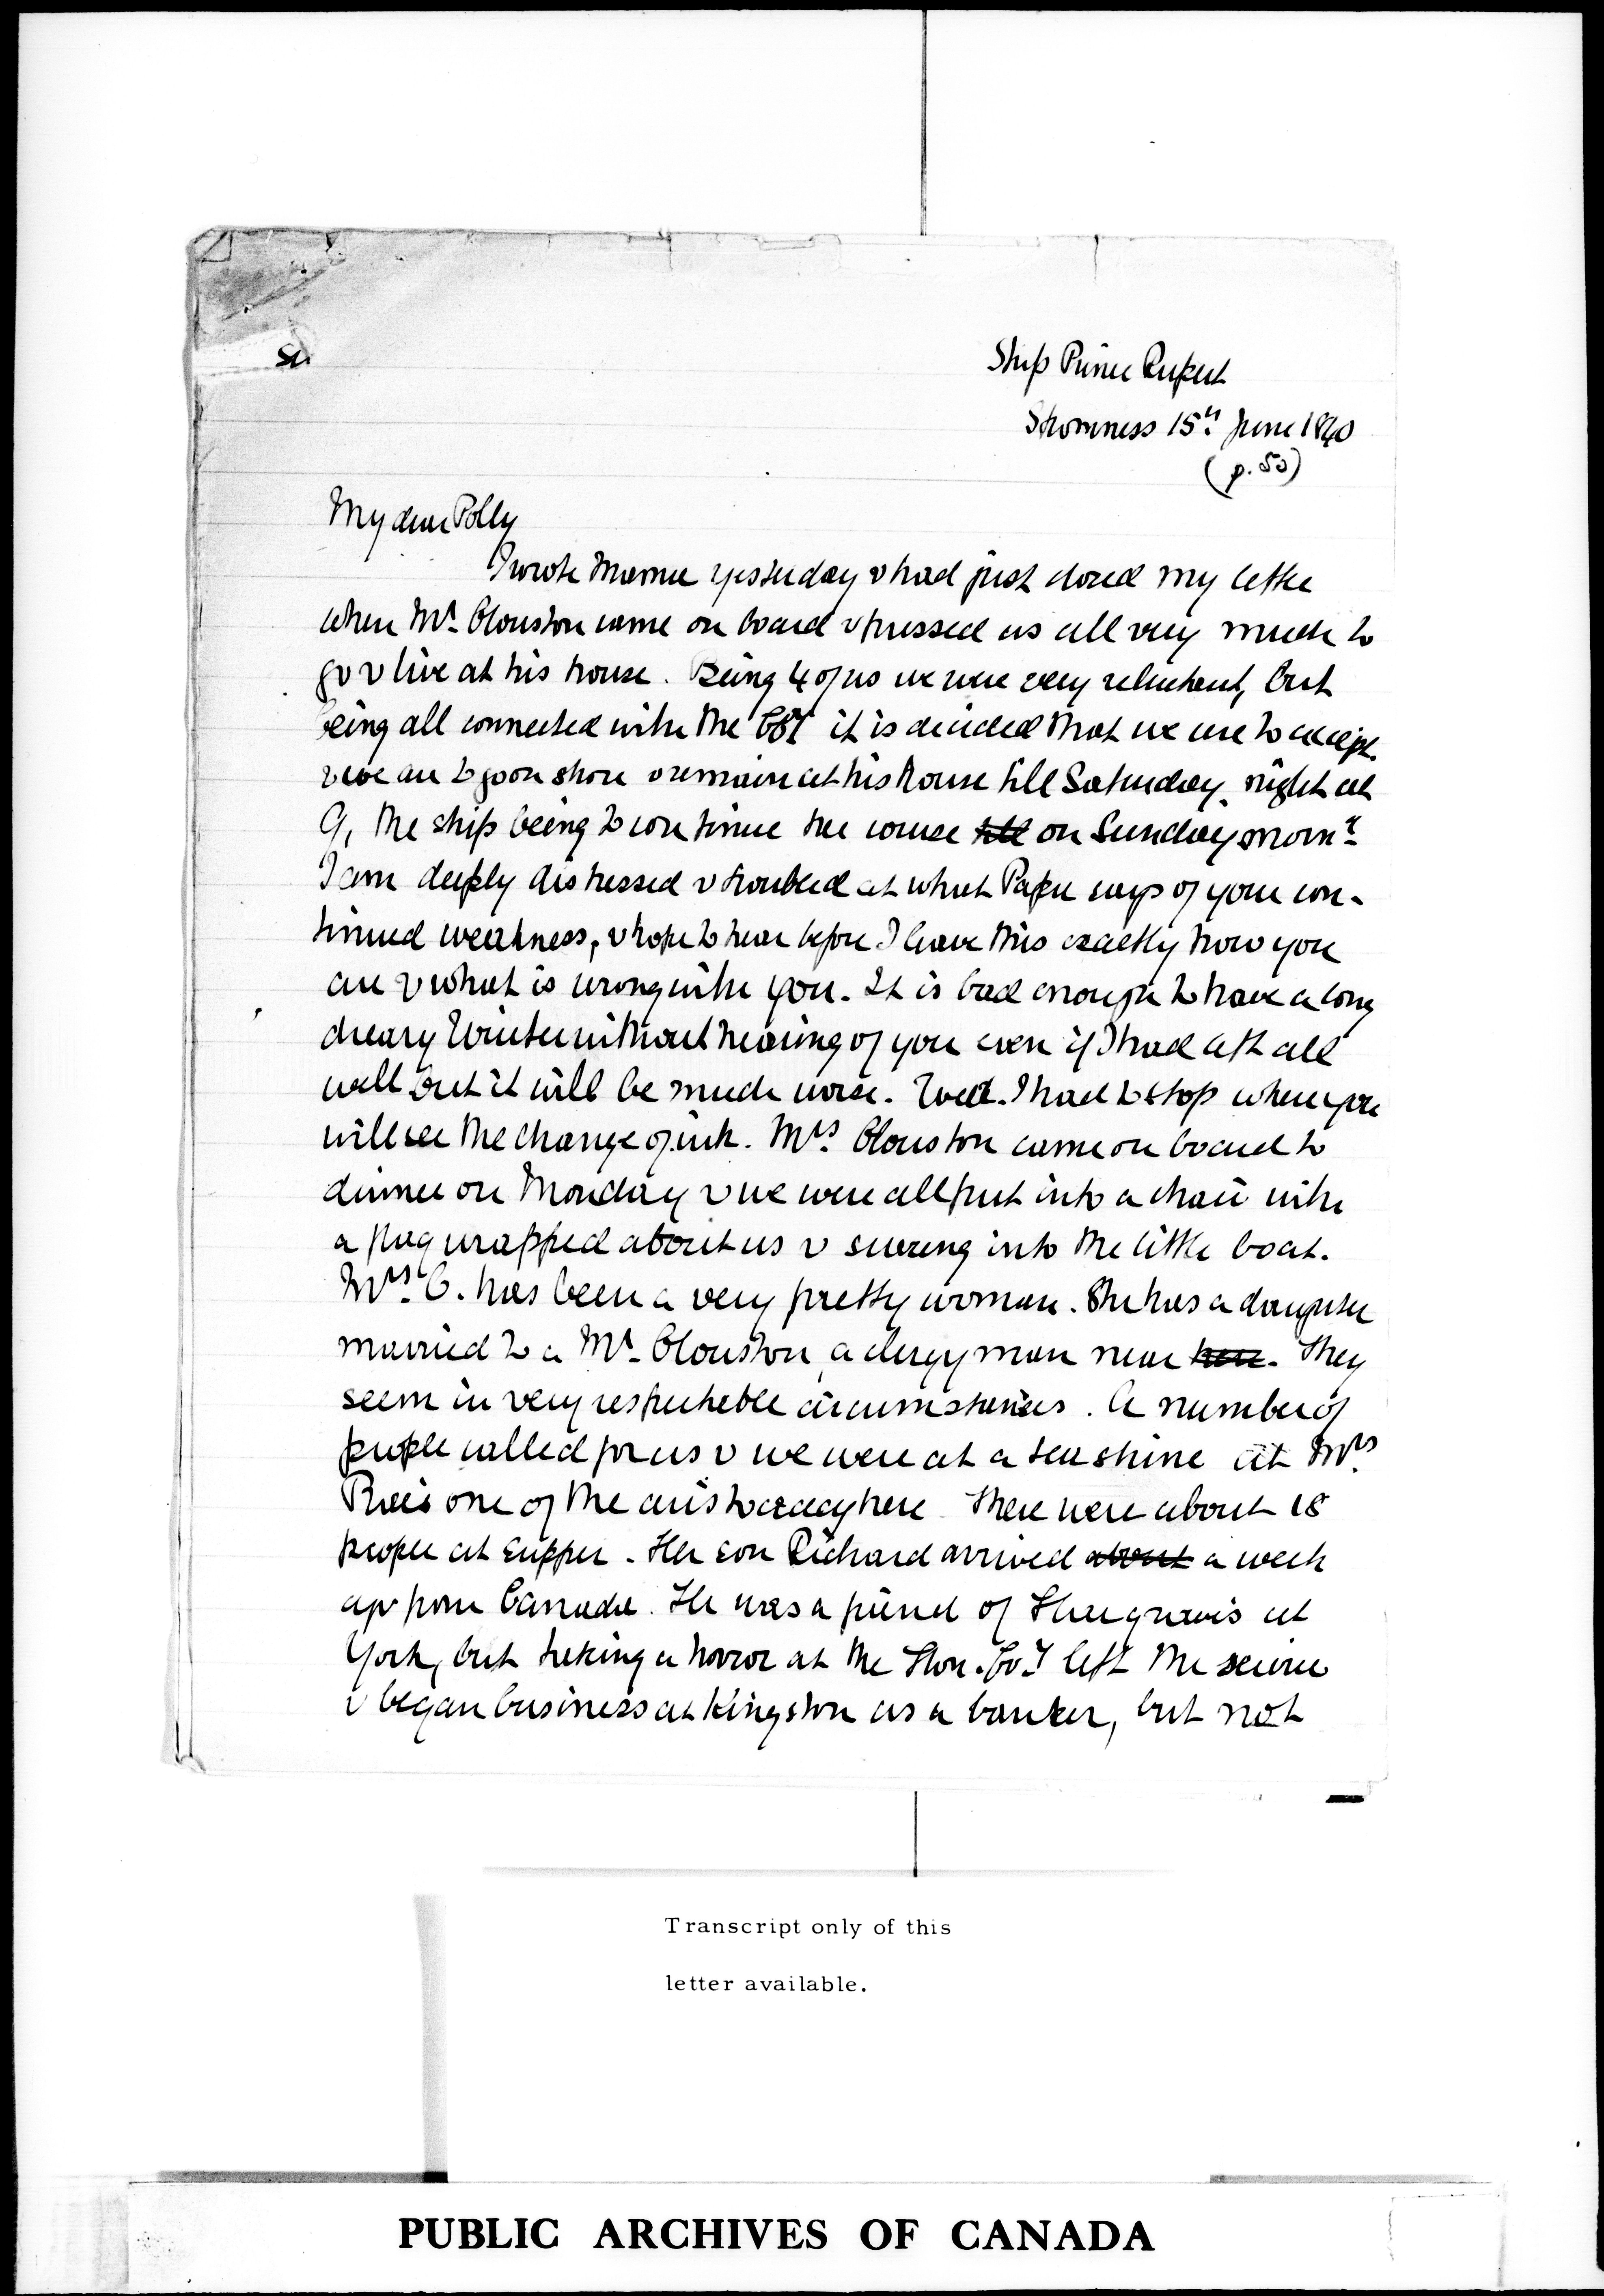 Ship Prince Rupert
Stromness 15th June 1840
(p. 50)
My dear Polly
I wrote Mama yesterday & had just closed my letter
when Mr. Clouston came on board & pressed us all very much to
go & live at his house. Being 4 of us we were very reluctant, but
being all connected with the Coy it is decided that we are to accept.
& we are to go on shore & remain at his house till Saturday night at
9, the ship being to continue her course till on Sunday morng
I am deeply distressed & troubled at what Papa says of your con-
tinued weakness, & hope to hear before I leave this exactly how you
are & what is wrong with you. It is bad enough to have a long
dreary Winter without hearing of you even if I had left all
well but it will be much worse. Well. I had to stop where you
will see the change of ink. Mrs. Clouston came on board to
dinner on Monday & we were all put into a chair with
a flag wrapped about us & swung into the little boat.
Mrs. C. has been a very pretty woman. She has a daughter
married to a Mr. Clouston, a clergyman near here. They
seem in very respectable circumstances. A number of
people called for us & we were at a tea shine at Mrs.
Rae's one of the aristocracy here. There were about 18
people at supper. Her son Richard arrived about a week
ago from Canada. He was a friend of Hargrave's at
York, but taking a horror at the Hon. Coy left the service
& began business at Kingston as a banker, but not
Transcript only of this
letter available.
PUBLIC ARCHIVES OF CANADA